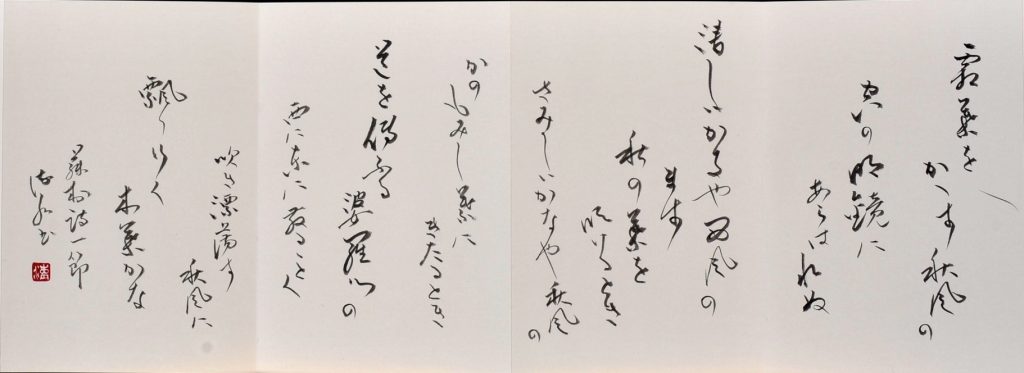 霜葉を
かへす秋風の
空の明鏡に
あらはれぬ
清しいかなや西風の
まず
秋の葉を
吹けるとき
さみしいかなや秋風の
かのもみし葉に
きたるとき
道を傳ふる
婆羅門の
西に東に散ることく
吹き漂蕩す
秋風に
飄り行く
木葉かな
藤村詩一節